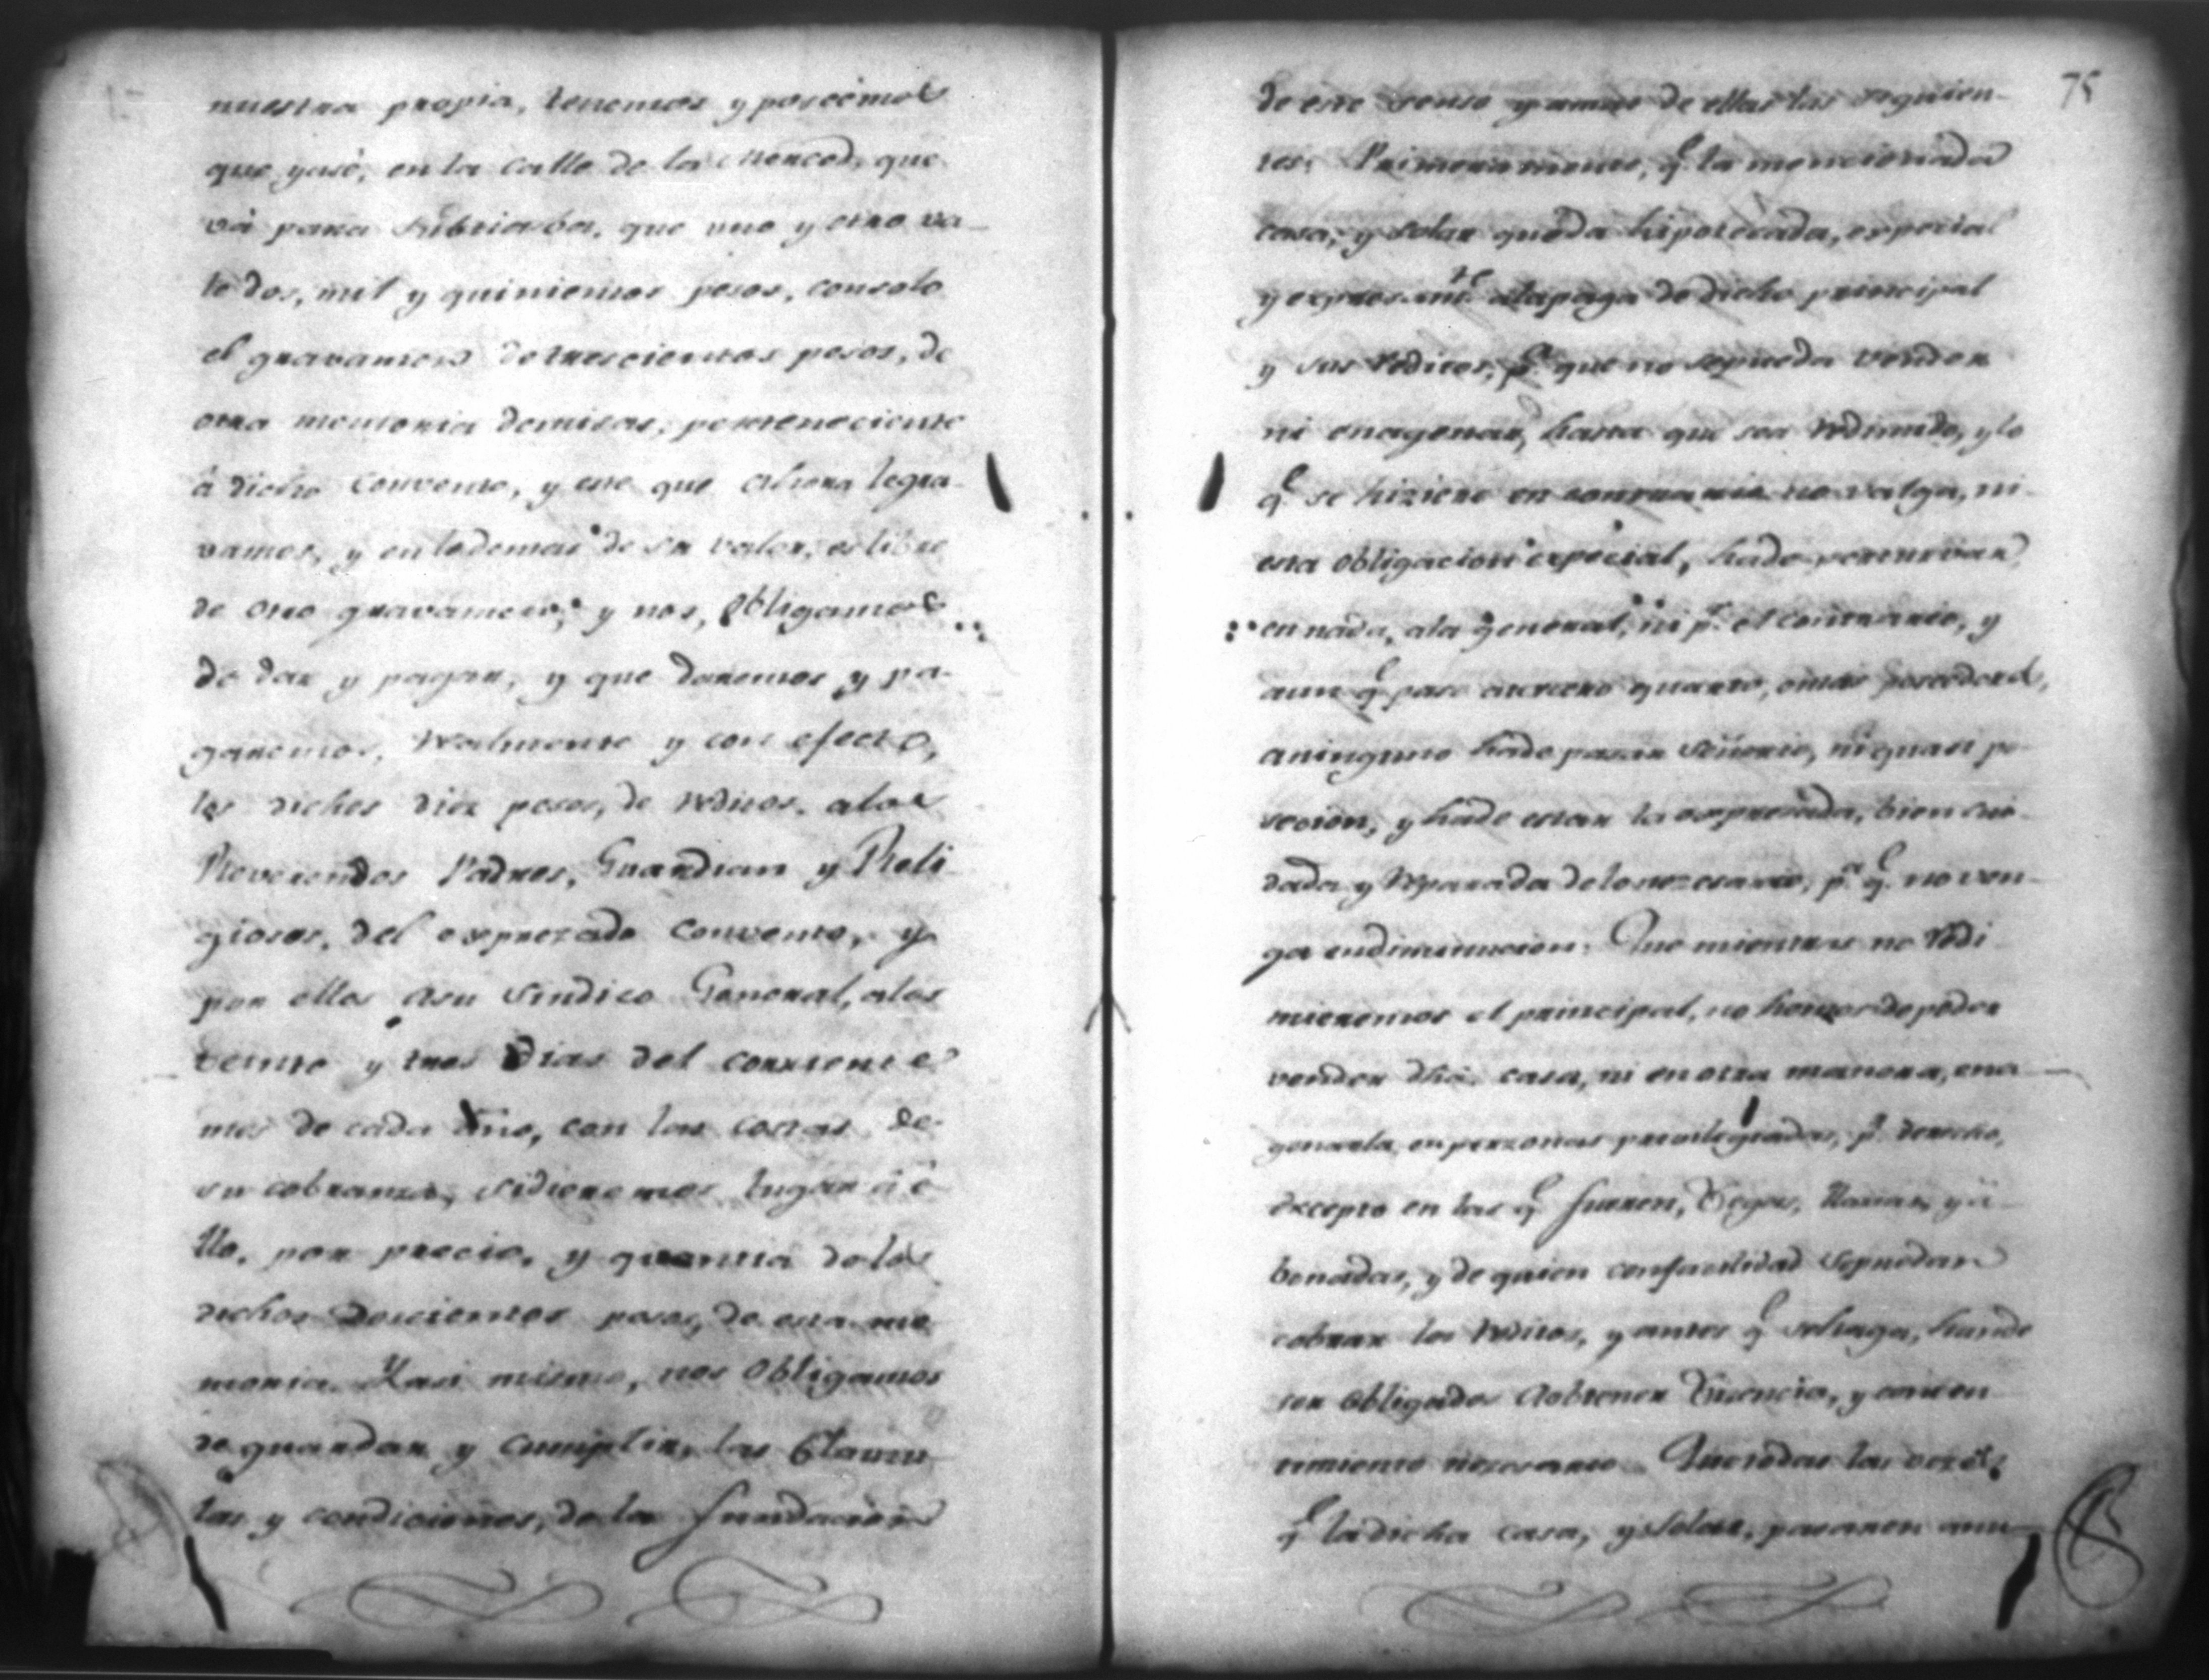 nuestra propia, tenemos y poseemos
que yase, en la calle de la Merced, que
và para que uno y otro va-
le dos, mil y quinientos pesos, consolo
el gravamen detrescientos pesos, de
otra memoria demisas, perteneciente
â dicho Convento, y este que ahora legra-
vamos, y enlodemas de su valor, es libre
de otro gravamen, y nos, Obligamos
de dar y pagar, y que daremos y pa-
garemos, realmente y con efecto,
los dichos diez pesos, de reditos, alos
Reverendos Padres, Guardian y Reli-
giosos, del exprezado Convento, y
por ellos asu Sindico General, alos
veinte y tres Dias del corriente
mes de cada año, con las costas de
su cobranza, sidieremos lugar â e-
llo, por precio, y quantia delos
dichos Doscientos pesos, de esta me-
moria. Yasi mismo, nos Obligamos
de guardar y Cumplir, las Clausu-
las y condiciones, de la fundacion
75
de este senso y amas de ellas las siguien-
tes. Primeramente, q.e la mencionada
casa, y solar queda hipotecada, especial
y expresam.te alapaga de dicho principal
y sus reditos, p.a que no sepueda vender
ni enagenar, hasta que sea redimido, y lo
q.e se hiziere en contrario no valga, ni
esta Obligacion especial, hade perturvar
en nada, ala general, ni p.r el contrario, y
aun q.e pase atercero quarto, omas poseedores,
aninguno hade pasar Señorio, niquasi po-
secion, y hade estar la expresada, bien cui-
dada y reparada delonezesario, p.a q.e no ven-
ga endiminucion. Que mientras no redi-
mieremos el principal, no hemos depoder
vender dha. casa, ni en otra manera, ena-
genarla, en perzonas previlegiadas, p.r derecho,
excepto en las q.e fueren, Legas, llanas, y â-
bonadas, y de quien confacilidad sepuedan
cobrar los reditos, y antes q.e sehaga, hande
ser Obligados Aobtener Lisencia, y consen-
timiento nezesario. Quetodas las vezes
q.e ladicha casa, y solar, pasaren anu-